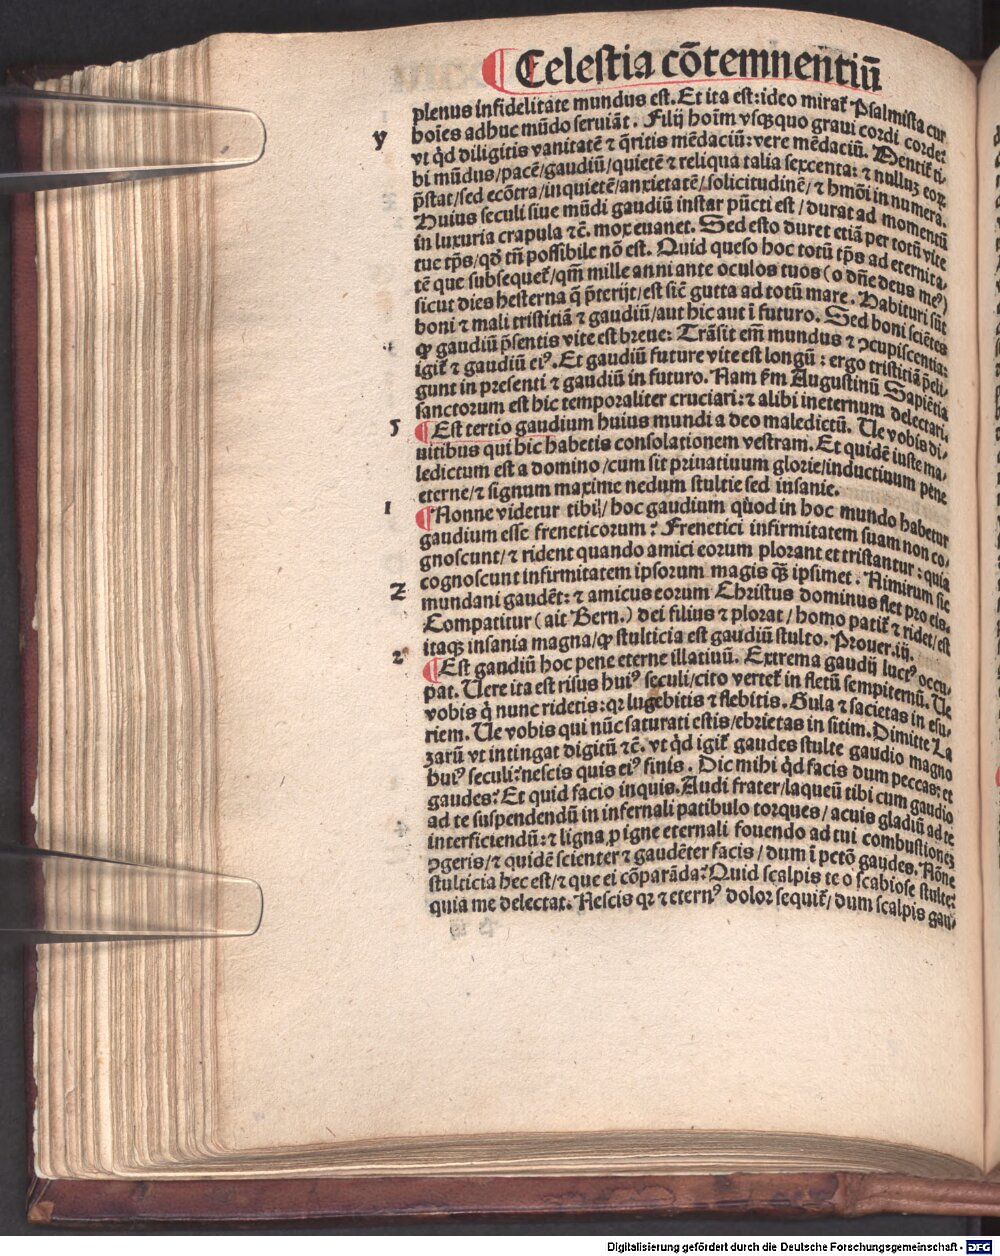 ¶ Celestia cōtemnentiū
plenus infidelitate mundus est. Et ita est: ideo mirat᷑ Psalmista cur
hoīes adhuc mūdo seruiāt. Filij hoīm vsq̄quo graui cordi corde?
y
vt qd̄ diligitis vanitatē ⁊ q̄ritis mēdaciū: vere mēdaciū. Mentit᷑ ti-
bi mūdus/pacē/gaudiū/quietē ⁊ reliqua talia sexcenta: ⁊ nulluȝ eoꝝ
p̄stat/sed ecōtra/inquietē/anxietatē/solicitudinē/⁊ hmōi innumera.
Huius seculi siue mūdi gaudiū instar pūcti est/durat ad momentū
in luxuria crapula ⁊c̄. mox euanet. Sed esto duret etiā per totū vite
tue tp̄s/qd̄ tn̄ possibile nō est. Quid queso hoc totū tp̄s ad eternita-
tē que subsequet᷑/qm̄ mille anni ante oculos tuos (o dn̄e deus meꝰ)
sicut dies hesterna q̄ p̄terijt/est sic̄ gutta ad totū mare. Habituri sūt
boni ⁊ mali tristitiā ⁊ gaudiū/aut hic aut ī futuro. Sed boni sciētes
ꝙ gaudiū p̄sentis vite est breue: Trāsit em̄ mundus ⁊ ꝯcupiscentia:
igit᷑ ⁊ gaudiū eiꝰ. Et gaudiū future vite est longū: ergo tristitiā p̄eli-
gunt in presenti ⁊ gaudiū in futuro. Nam s̄m Augustinū Sapiētia
sanctorum est hic temporaliter cruciari: ⁊ alibi ineternum delectari.
5
¶ Est tertio gaudium huius mundi a deo maledictū. Ue vobis di-
uitibus qui hic habetis consolationem vestram. Et quidē iuste ma-
ledictum est a domino/cum sit priuatiuum glorie/inductiuum pene
eterne/⁊ signum maxime nedum stultie sed insanie.
1
¶ Nonne videtur tibi/hoc gaudium quod in hoc mundo habetur
gaudium esse freneticorum? Frenetici infirmitatem suam non co-
gnoscunt/⁊ rident quando amici eorum plorant et tristantur: quia
cognoscunt infirmitatem ipsorum magis q̄ȝ ipsimet. Nimirum sic
Z
mundani gaudēt: ⁊ amicus eorum Christus dominus flet pro eis.
Compatitur (ait Bern.) dei filius ⁊ plorat/homo patit᷑ ⁊ ridet/est
itaqȝ insania magna/ꝙ stulticia est gaudiū stulto. Prouer.iij.
2
¶ Est gaudiū hoc pene eterne illatiuū. Extrema gaudij luctꝰ occu-
pat. Uere ita est risus huiꝰ seculi/cito vertet᷑ in fletū sempiternū. Ue
vobis q̄ nunc ridetis: qꝛ lugebitis ⁊ flebitis. Gula ⁊ sacietas in esu-
riem. Ue vobis qui nūc saturati estis/ebrietas in sitim. Dimitte La
zarū vt intingat digitū ⁊c̄. vt qd̄ igit᷑ gaudes stulte gaudio magno
huiꝰ seculi? nescis quis eiꝰ finis. Dic mihi qd̄ facis dum peccas: et
gaudes? Et quid facio inquis. Audi frater/laqueū tibi cum gaudio
ad te suspendendū in infernali patibulo torques/acuis gladiū ad te
interficiendū: ⁊ ligna ꝓ igne eternali fouendo ad tui combustioneȝ
ꝯgeris/⁊ quidē scienter ⁊ gaudēter facis/dum ī pctō gaudes. Nōne
stulticia hec est/⁊ que ei cōparāda? Quid scalpis te o scabiose stulte?
quia me delectat. Nescis qꝛ ⁊ eternꝰ dolor sequit᷑/dum scalpis gau-
Digitalisierung gefördert durch die Deutsche Forschungsgemeinschaft - DFG